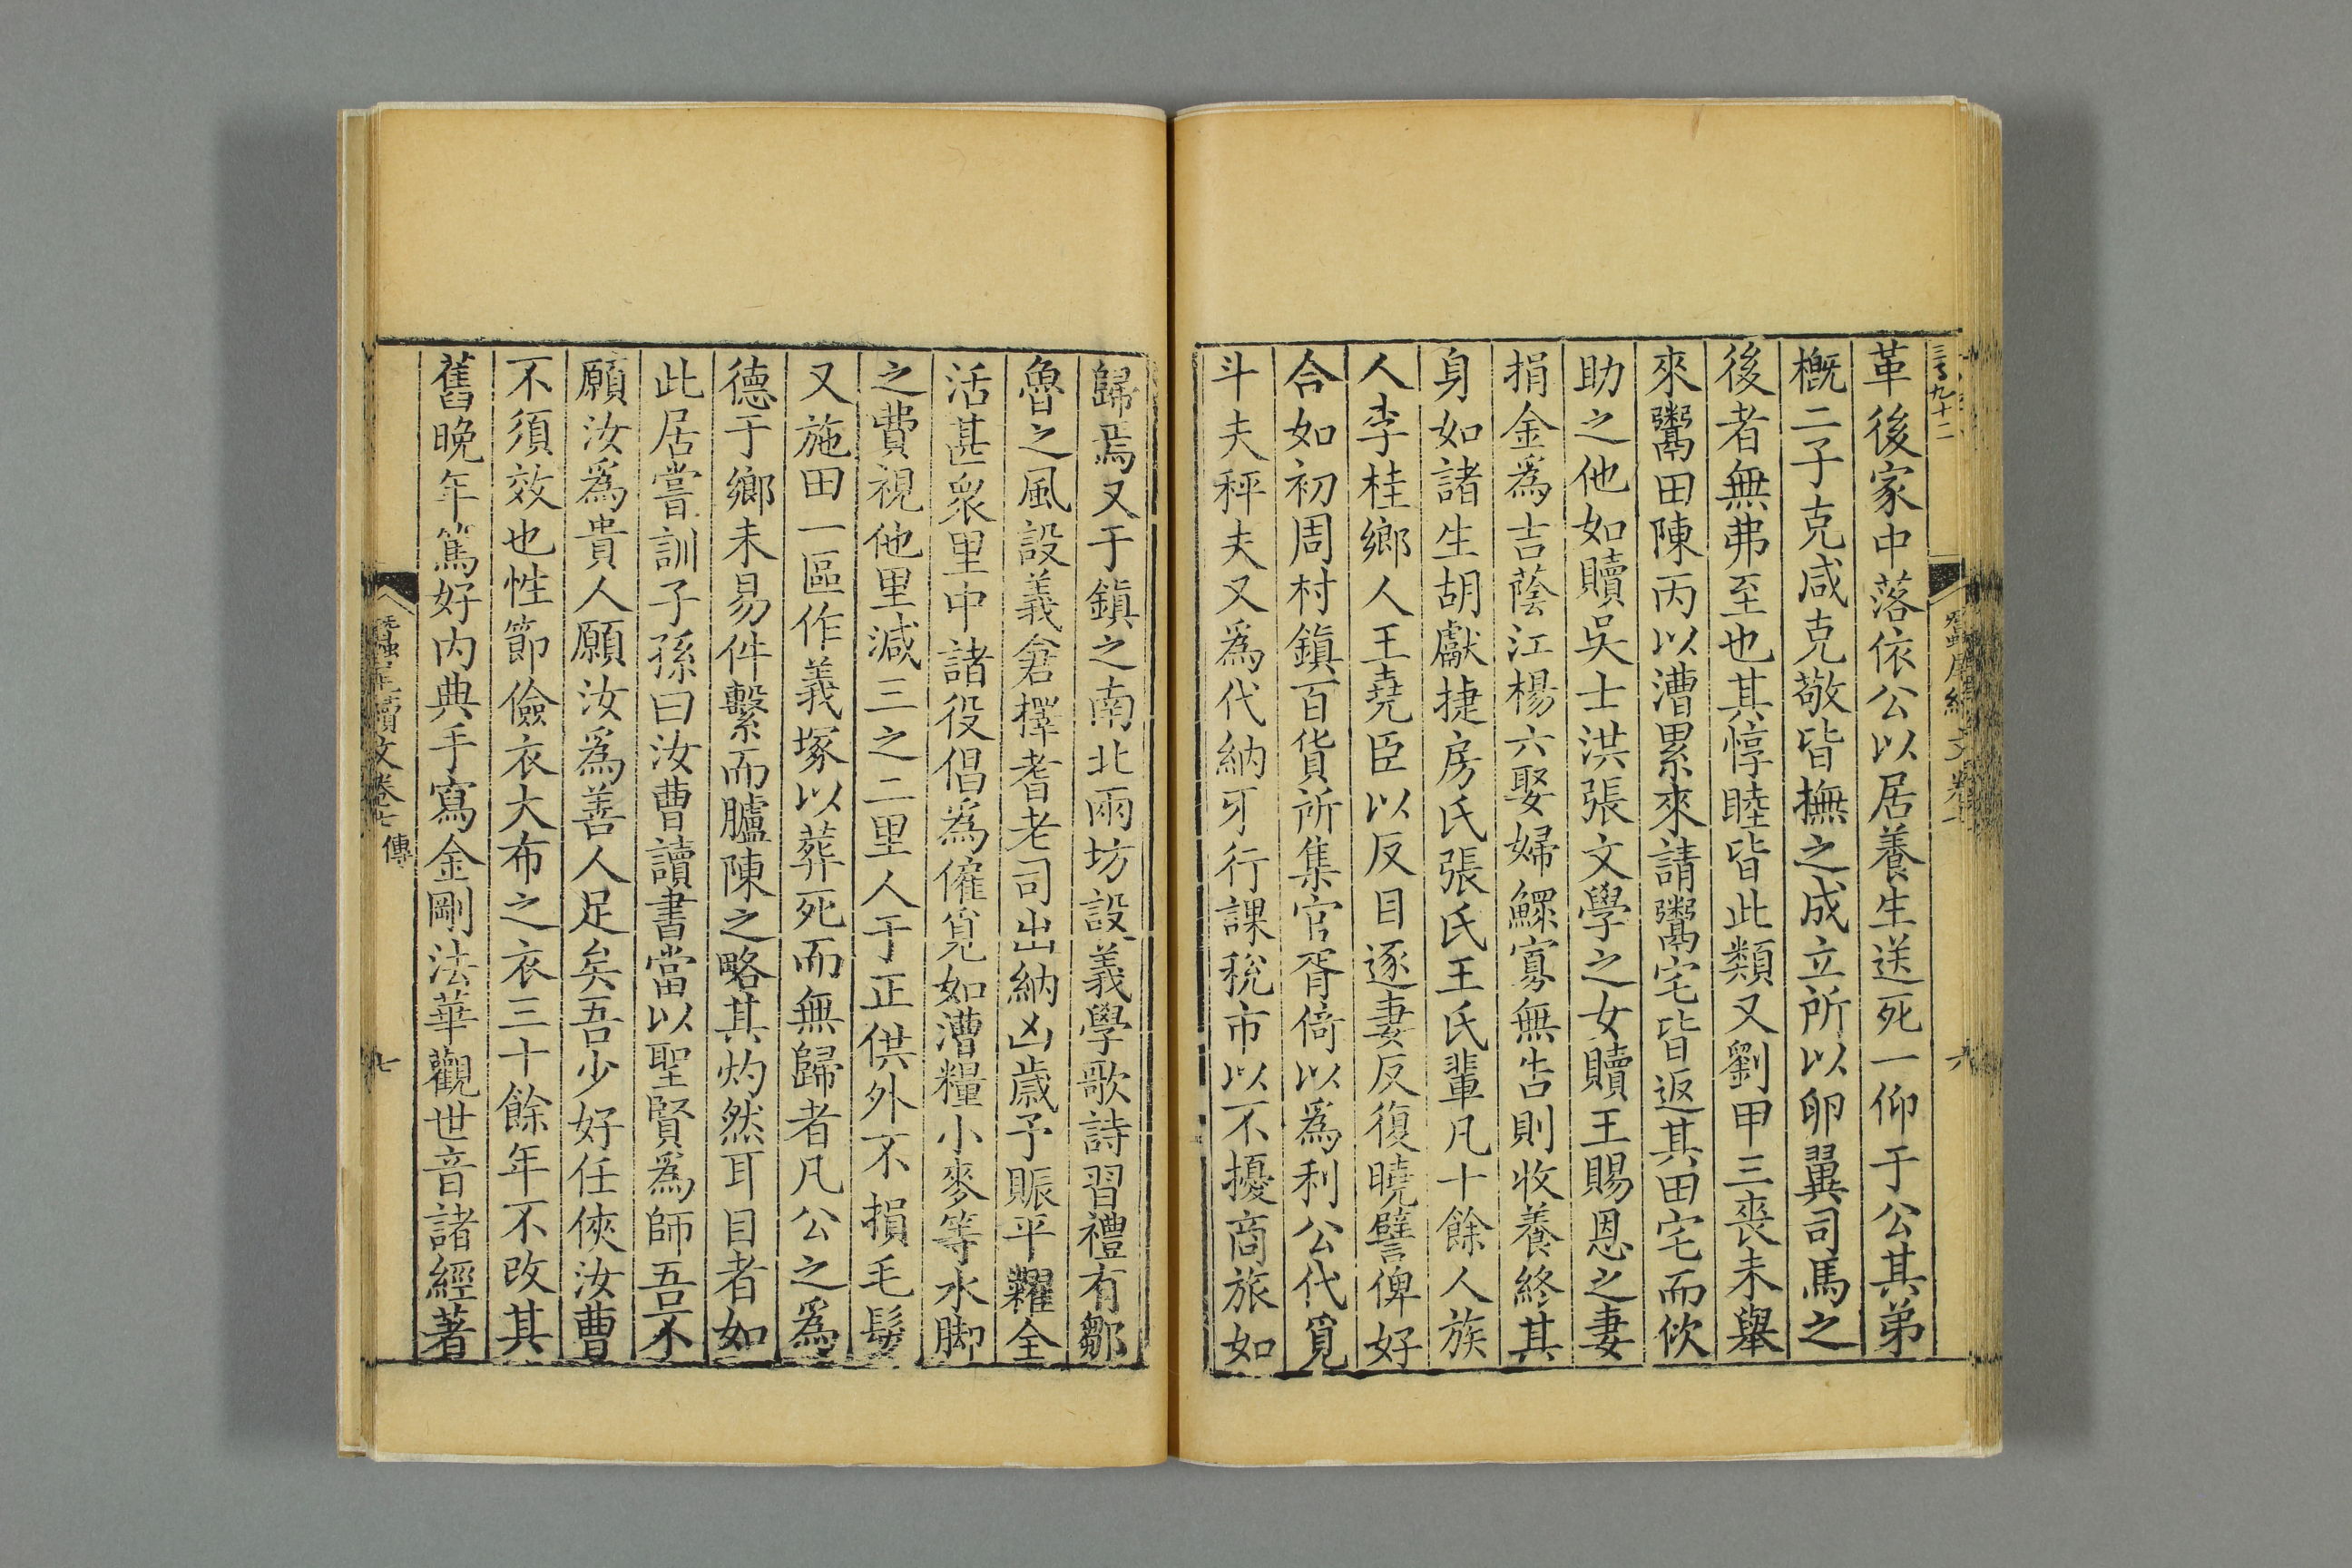 三百九十二
革後家中落依公以居養生送死一仰于公其弟
槪二子克咸克敬皆撫之成立所以卵翼司馬之
後者無弗至也其惇睦皆此類又劉甲三喪未舉
來鬻田陳丙以漕累來請鬻宅皆返其田宅而佽
助之他如贖吳士洪張文學之女贖王賜恩之妻
捐金爲吉蔭江楊六娶婦鰥寡無告則收養終其
身如諸生胡獻捷房氏張氏王氏輩凡十餘人族
人李桂鄉人王堯臣以反目逐妻反復曉譬俾好
合如初周村鎭百貨所集官胥倚以爲利公代覓
斗夫秤夫又爲代納牙行課稅市以不擾商旅如
歸焉又于鎭之南北兩坊設義學歌詩習禮有鄒
魯之風設義倉擇耆老司出納凶歲予賑平糶全
活甚衆里中諸役倡爲僱覓如漕糧小麥等水脚
之費視他里減三之二里人于正供外不損毛髮
又施田一區作義塚以葬死而無歸者凡公之爲
德于鄉未易件繫而臚陳之略其灼然耳目者如
此居嘗訓子孫曰汝曹讀書當以聖賢爲師吾不
願汝爲貴人願汝爲善人足矣吾少好任俠汝曹
不須效也性節儉衣大布之衣三十餘年不改其
舊晚年篤好內典手寫金剛法華觀世音諸經著
蠶尾續文卷七 傳
七